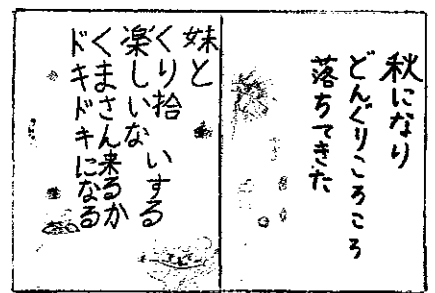 秋になり
どんぐりころころ
落ちてきた
妹と
くり拾いする
楽しいな
くまさん来るか
ドキドキになる